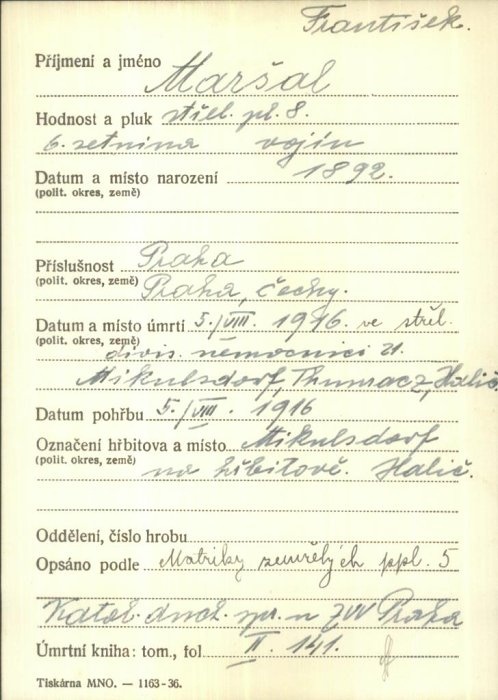 František.
Příjmení a jméno Maršal
Hodnost a pluk střel. pl. 8.
6. setnina vojín
Datum a místo narození 1892.
(polit. okres, země)
Příslušnost Praha
(polit. okres, země) Praha, Čechy.
Datum a místo úmrtí 5./VIII. 1916. ve střel.
(polit. okres, země) divis. nemocnici 21.
Mikulsdorf, Thumacz, Halič
Datum pohřbu 5./VIII. 1916
Označení hřbitova a místo Mikulsdorf
(polit. okres, země) na hřbitově. Halič.
Oddělení, číslo hrobu
Opsáno podle Matriky zemřelých ppl. 5
Katol. duch. spr. u ZVV Praha
Úmrtní kniha: tom., fol II. 141.
Tiskárna MNO. — 1163-36.